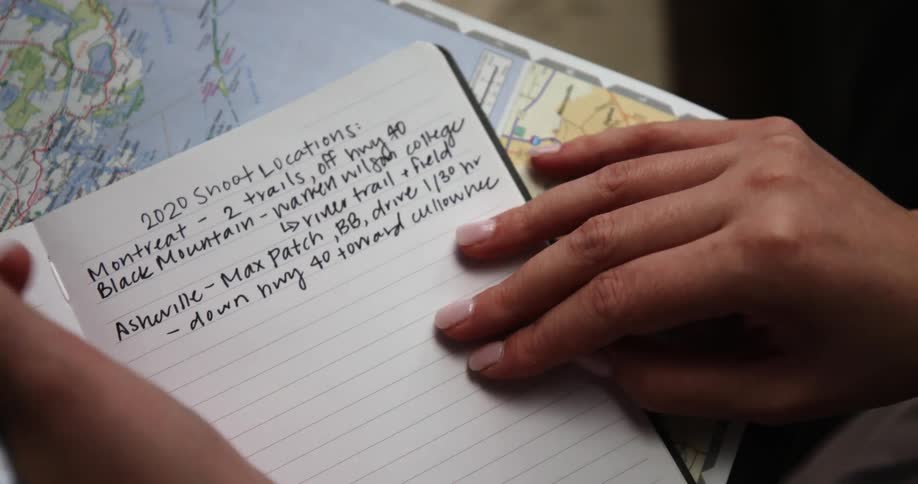 2020 Shoot Locations:
Montreat - 2 trails, off hwy 40
Black Mountain - warren wilson college
↳ river trail + field
Asheville - Max Patch, BB, drive 1/30 hr
- down hwy 40 toward cullowhee